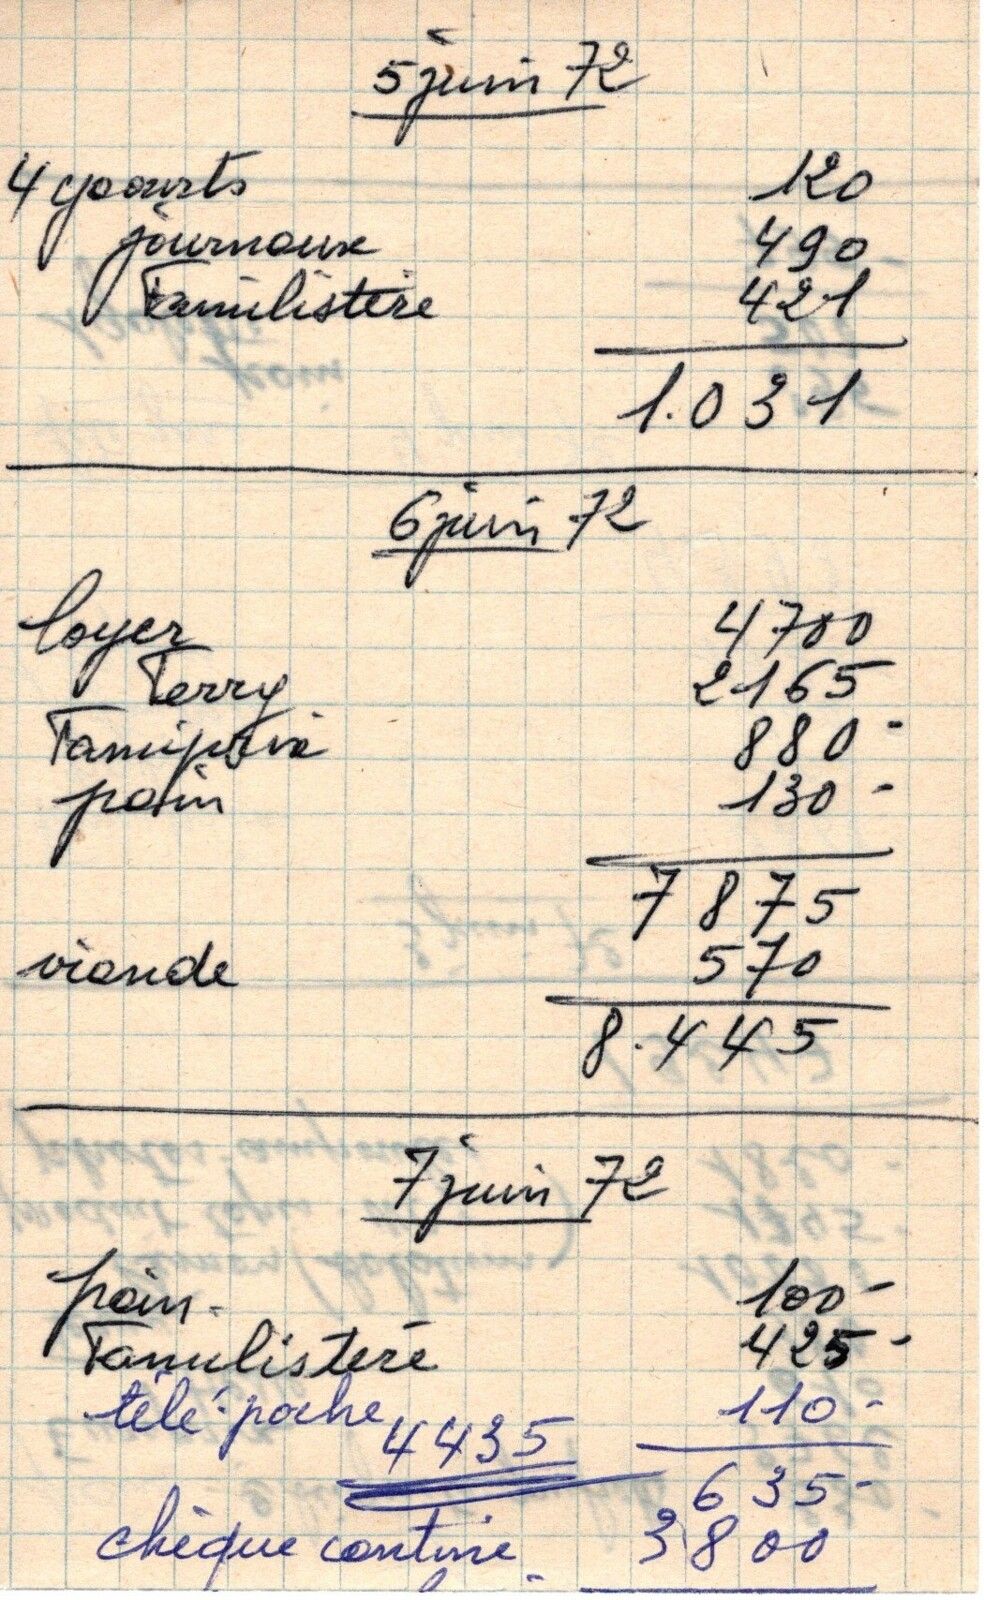 5 juin 72
4 yaourts 120
journaux 490
Familistère 421
1.031
6 juin 72
loyer 4700
Ferry 2165
Familiprix 880-
pain 130-
7875
viande 570
8.445
7 juin 72
pain- 100-
Familistère 425-
télé-poche 110-
4435 635-
chèque cantine 3800